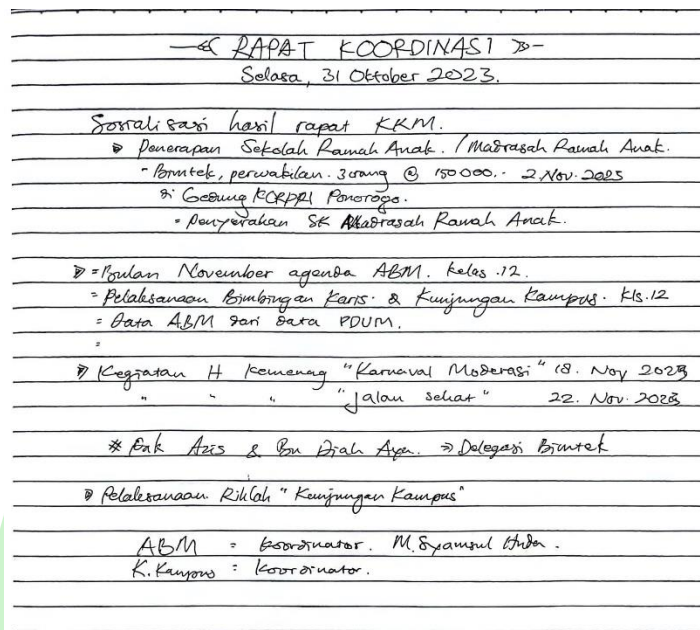 RAPAT KOORDINASI
Selasa, 31 Oktober 2023.
Sosialisasi hasil rapat KKM.
Penerapan Sekolah Ramah Anak. / Madrasah Ramah Anak.
- Bimtek, perwakilan. 3 orang @ 150000.- 2 Nov. 2023
di Gedung KORPRI Ponorogo.
- Penyerahan SK Madrasah Ramah Anak.
= Bulan November agenda ABM. Kelas .12.
= Pelaksanaan Bimbingan Karis. & Kunjungan Kampus. Kls.12
= Data ABM dari data PDUM.
=
Kegiatan H Kemenag "Karnaval Moderasi" 18. Nov 2023
" " " "Jalan sehat" 22. Nov. 2023
* Pak Azis & Bu Diah Ayu. ⇒ Delegasi Bimtek
Pelaksanaan Rihlah "Kunjungan Kampus"
ABM = Koordinator. M. Syamsul Huda.
K. Kampus = Koordinator.